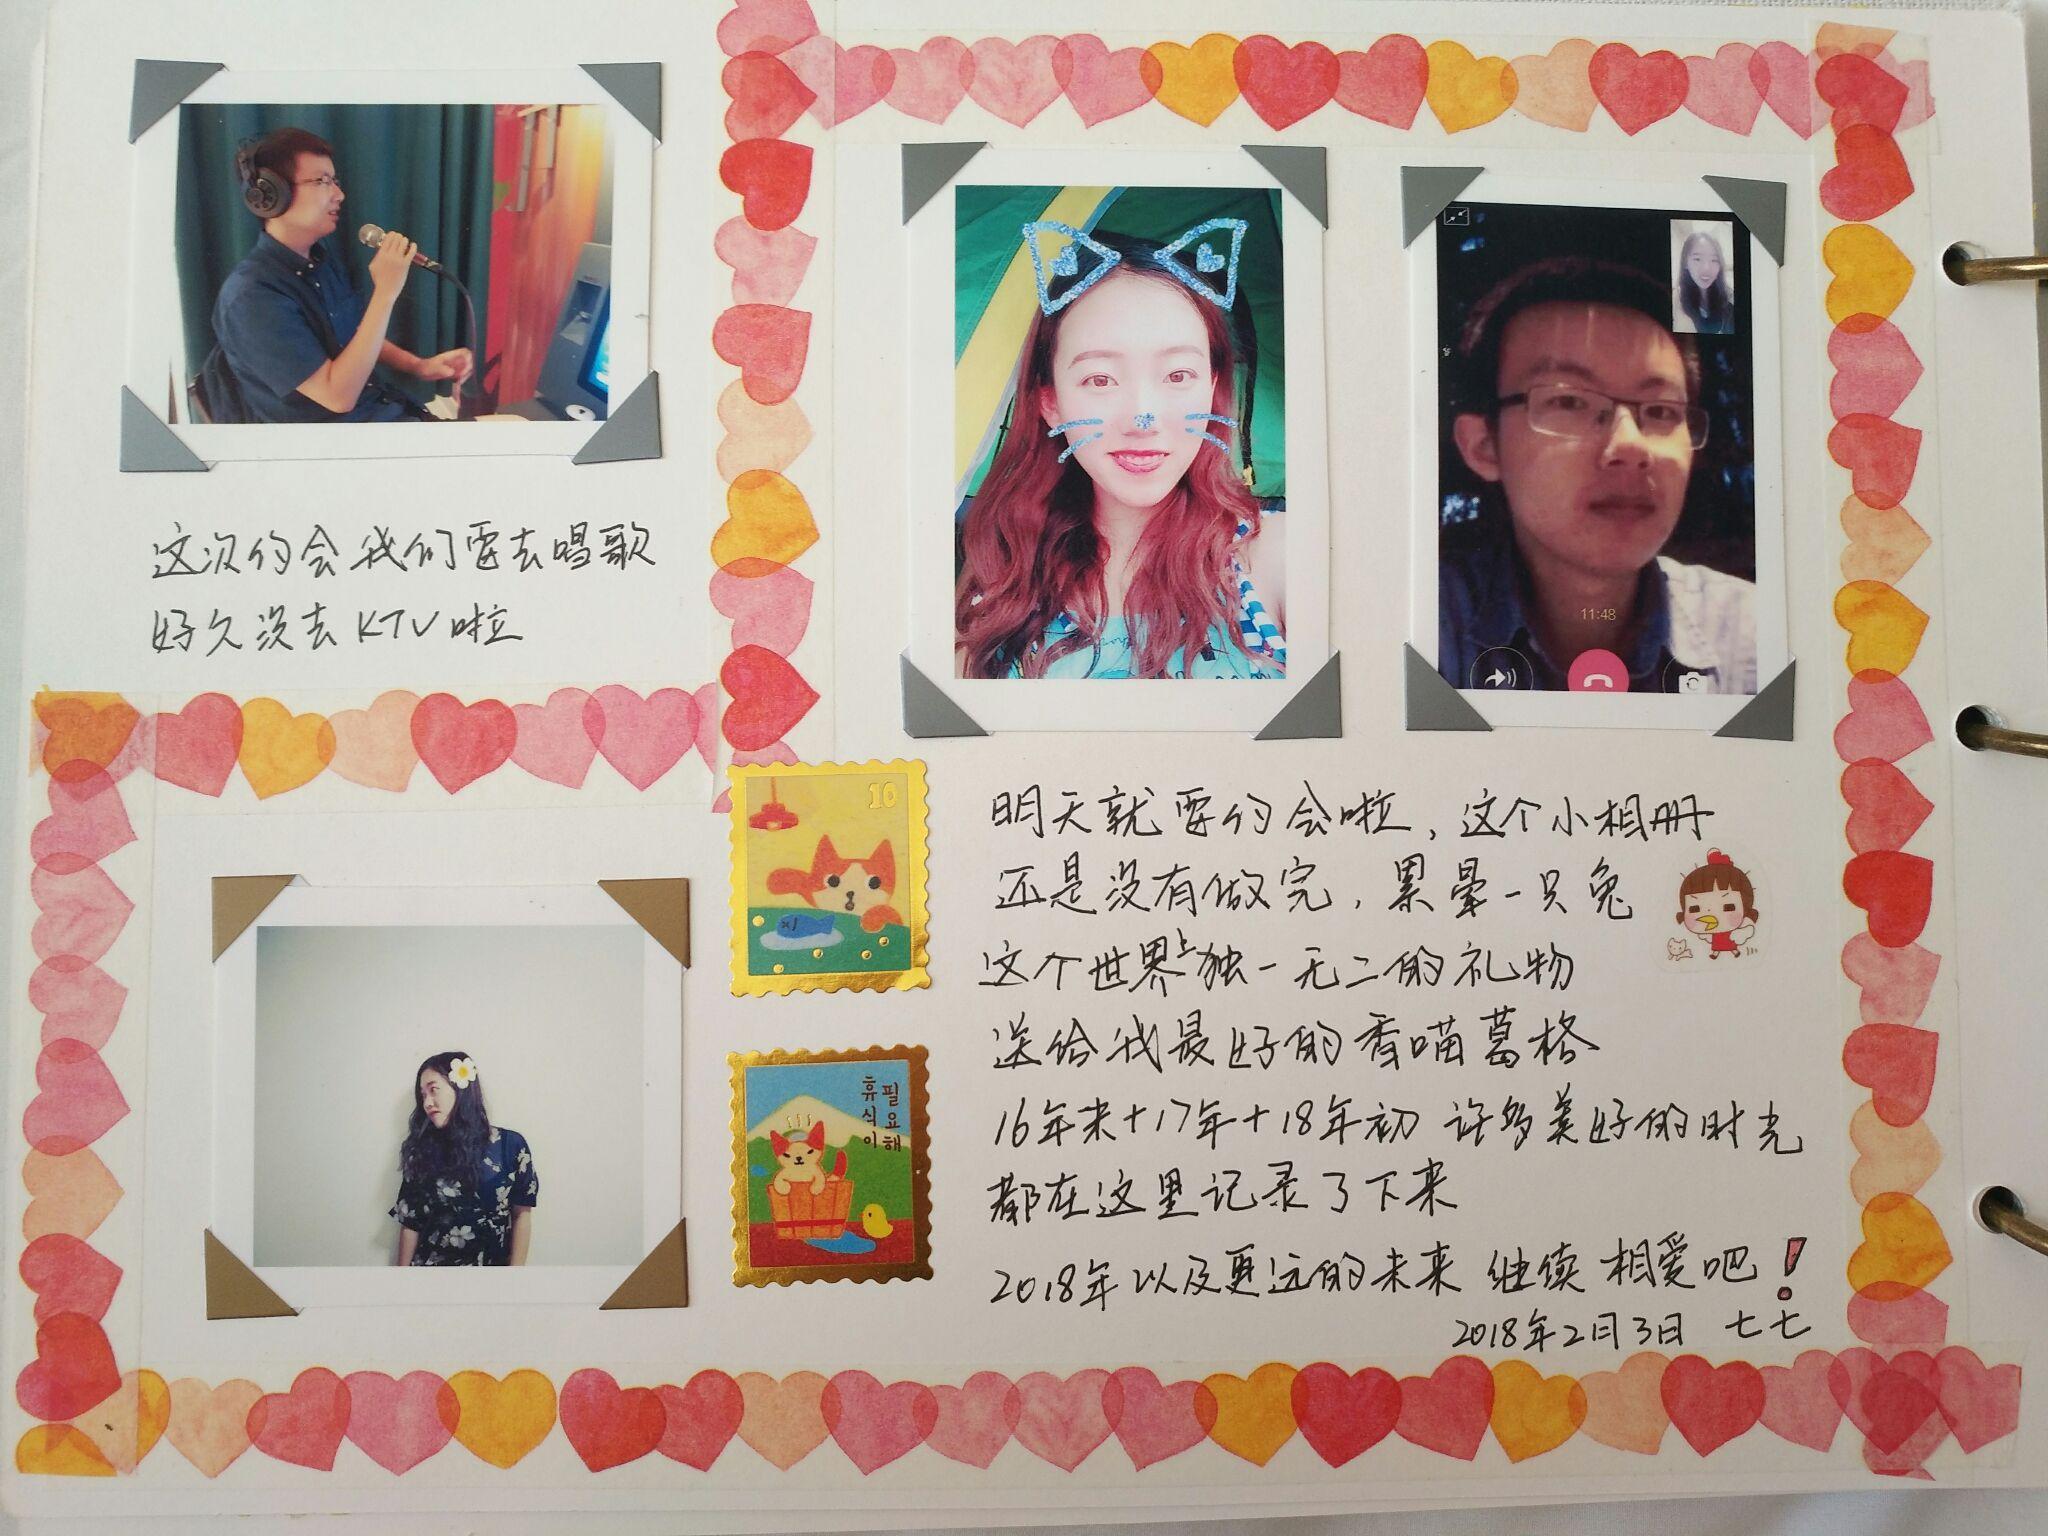 这次约会我们要去唱歌
好久没去KTV啦
11:48
10
x1
휴식이
필요해
明天就要约会啦，这个小相册
还是没有做完，累晕一只兔
这个世界上独一无二的礼物
送给我最好的香喵葛格
16年末+17年+18年初 许多美好的时光
都在这里记录了下来
2018年以及更远的未来 继续相爱吧！
2018年2月3日 七七